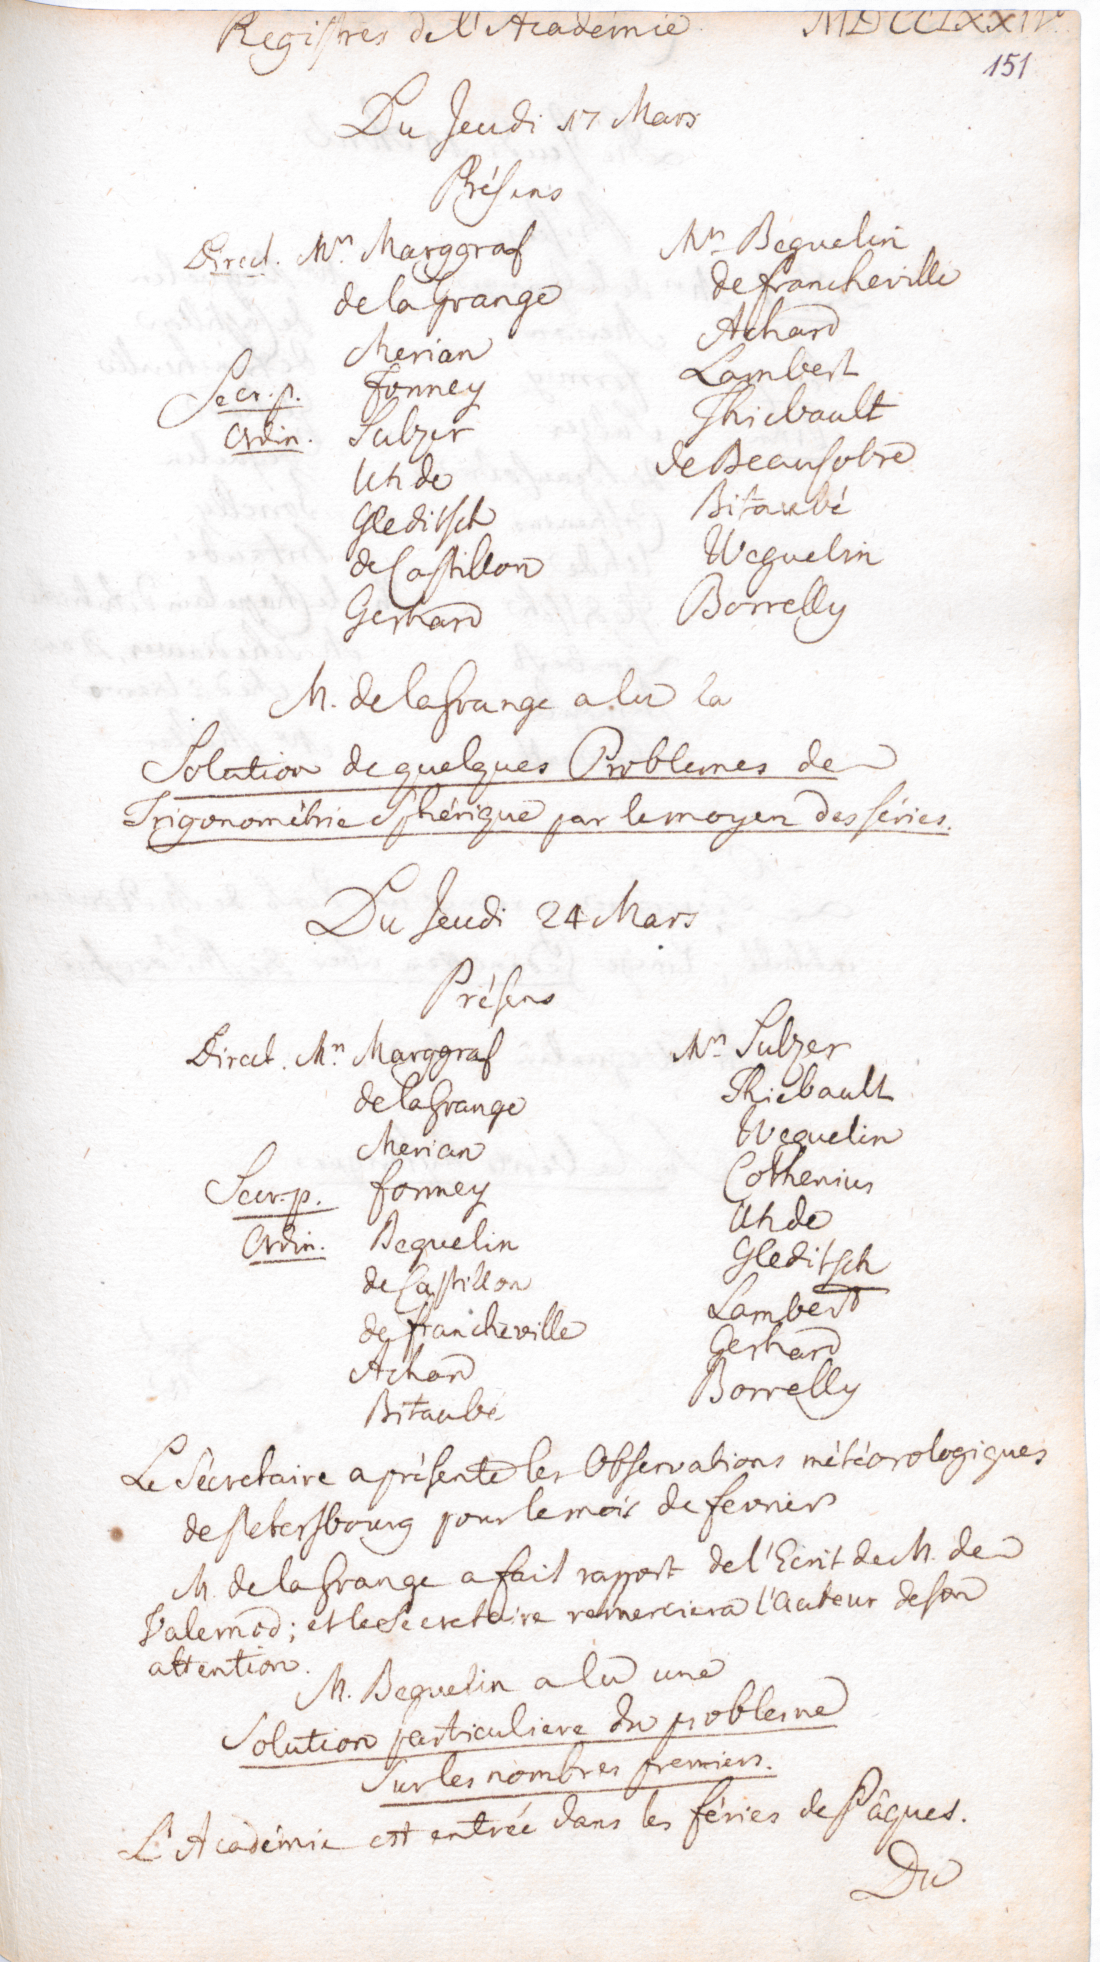 Registres de l'Académie. MDCCLXXIV.
151
Du Jeudi 17 Mars
Présens
Direct. Mrs Marggraf
de la Grange
Merian
Secr. p. Formey
Ordin. Sulzer
Uhde
Gleditsch
de Castillon
Gerhard
Mrs Beguelin
de Francheville
Achard
Lambert
Thiebault
de Beausobre
Bitaubé
Weguelin
Borrelly
M. de la Grange a lu la
Solution de quelques Problemes de
Trigonométrie Sphérique par le moyen des séries.
Du Jeudi 24 Mars
Présens
Direct. Mrs Marggraf
de la Grange
Merian
Secr. p. Formey
Ordin. Beguelin
de Castillon
de Francheville
Achard
Bitaubé
Mrs Sulzer
Thiebault
Weguelin
Cothenius
Uhde
Gleditsch
Lambert
Gerhard
Borrelly
Le Sécretaire a présenté les Observations météorologiques
de Petersbourg pour le mois de fevrier
M. de la Grange a fait rapport de l'Ecrit de M. de
Valernod; et le Secretaire remerciera l'Auteur de son
attention.
M. Beguelin a lu une
Solution particuliere du probleme
sur les nombres premiers.
L'Académie est entrée dans les féries de Pâques.
Du